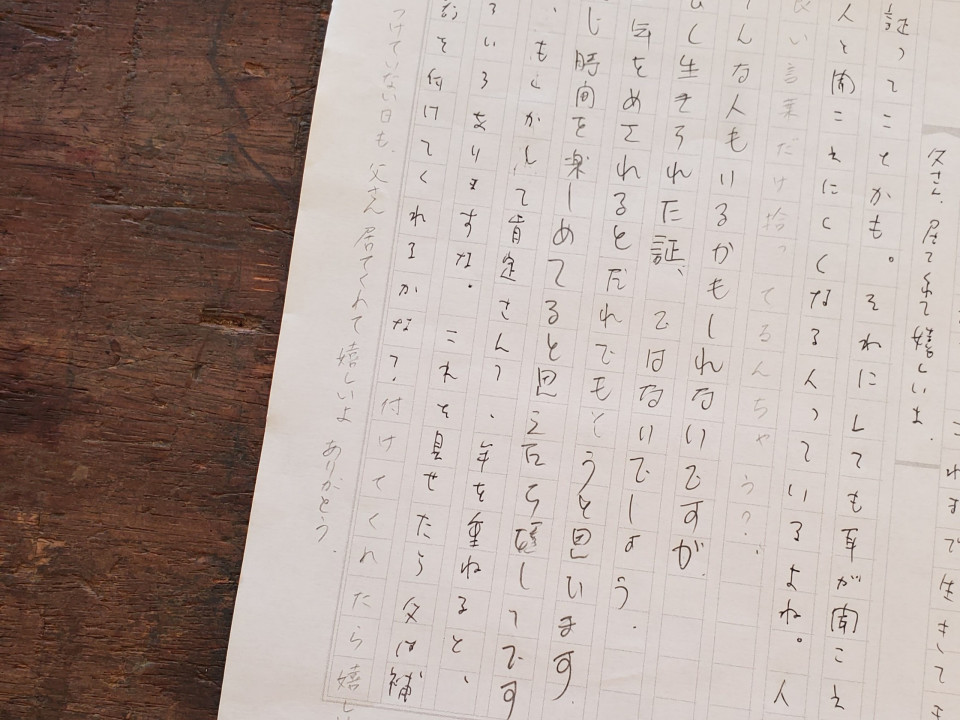 これまで生きても
父さん、居てくれて嬉しいよ。
証ってことかも。それにしても耳が聞こえ
人と聞こえにくくなる人っているよね。人
良い言葉だけ拾ってるんちゃう?
んな人もいるかもしれないですが
しく生きられた証、ではないでしょう。
年をめされるとだれでもそうと思います
じ時間を楽しめてると思えたら嬉しいです
、もとかんして肯定さんて、年を重ねると、
ろいろありますな。これを見せたら父は補
を付けてくれるかな?付けてくれたら嬉し
つけていない日も、父さん居てくれて嬉しいよ ありがとう。